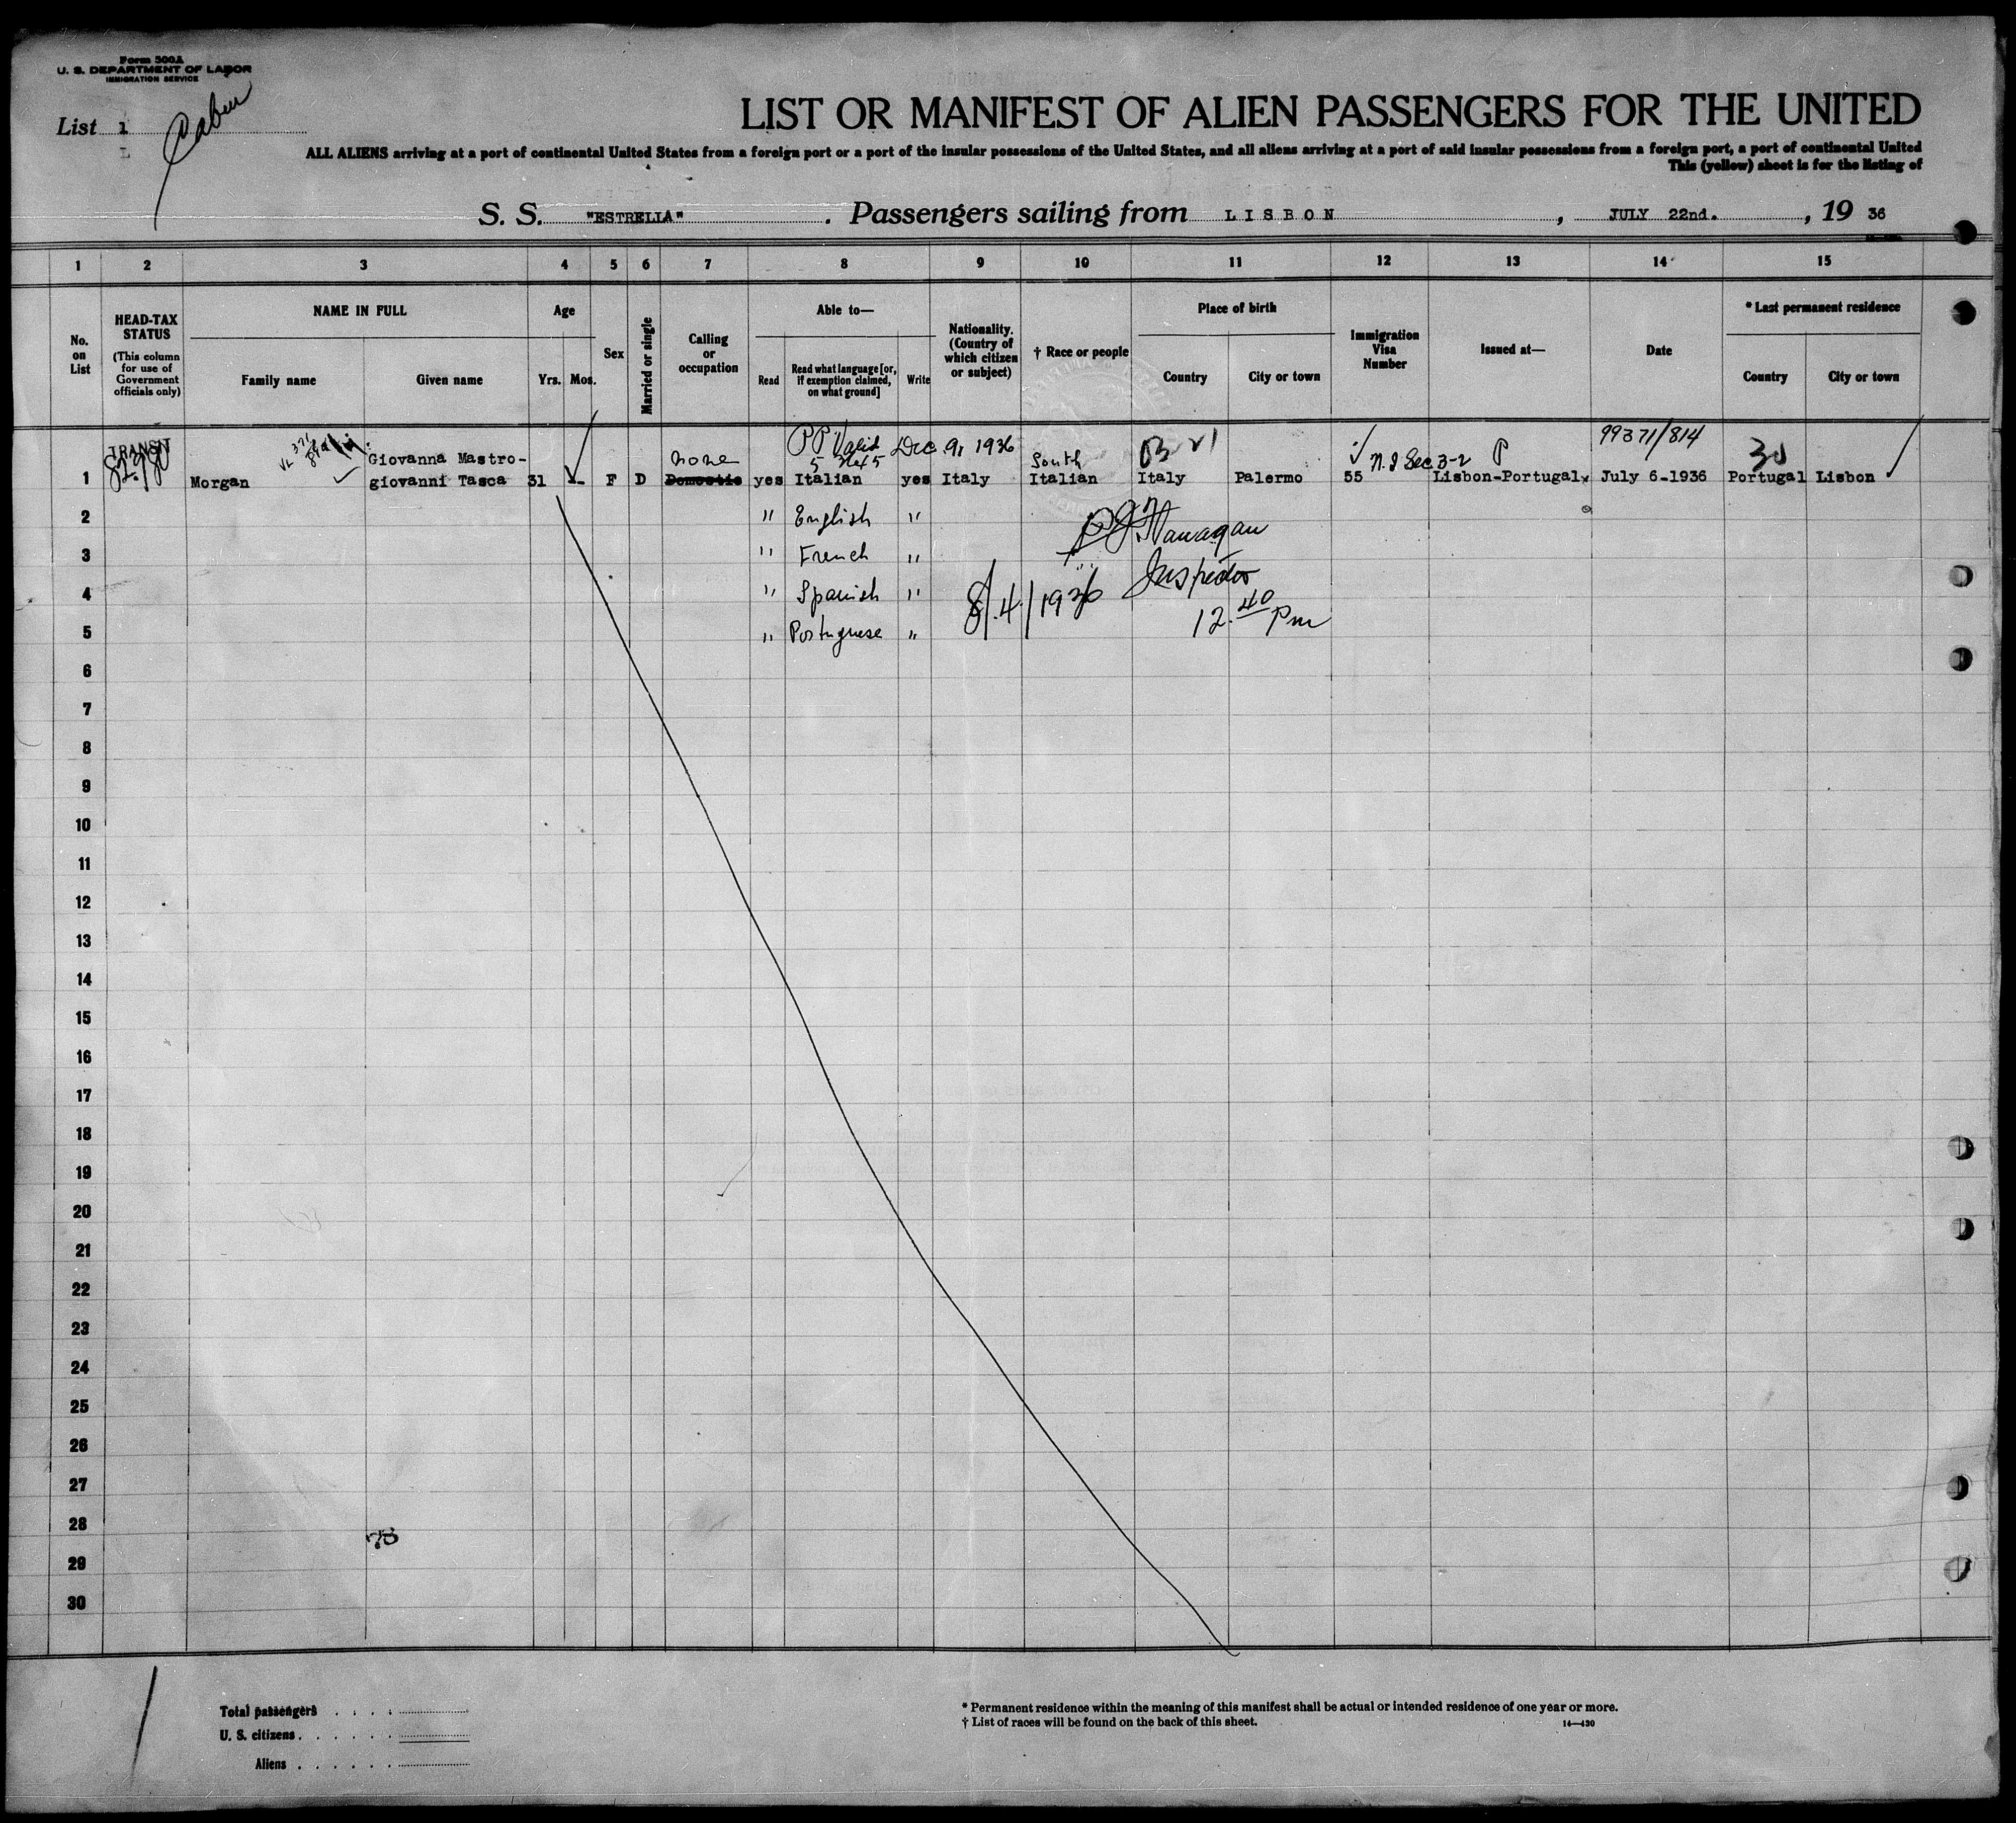 Form 500A
U. S. DEPARTMENT OF LABOR
IMMIGRATION SERVICE
List 1
Cabin
LIST OR MANIFEST OF ALIEN PASSENGERS FOR THE UNITED
ALL ALIENS arriving at a port of continental United States from a foreign port or a port of the insular possessions of the United States, and all aliens arriving at a port of said insular possessions from a foreign port, a port of continental United
This (yellow) sheet is for the listing of
S. S. "ESTRELLA" . Passengers sailing from LISBON , JULY 22nd. , 19 36
1 2 3 4 5 6 7 8 9 10 11 12 13 14 15
No. on List
HEAD-TAX STATUS
(This column for use of Government officials only)
NAME IN FULL
Family name Given name
Age
Yrs. Mos.
Sex
Married or single
Calling or occupation
Able to—
Read Read what language [or, if exemption claimed, on what ground] Write
Nationality. (Country of which citizen or subject)
† Race or people
Place of birth
Country City or town
Immigration Visa Number
Issued at—
Date
* Last permanent residence
Country City or town
TRANSIT PP Valid Dec 9, 1936 99371/814
Giovanna Mastro- none South P 30
1 Morgan giovanni Tasca 31 - F D Domestic yes Italian yes Italy Italian Italy Palermo 55 Lisbon-Portugal July 6-1936 Portugal Lisbon
2 " English "
3 " French "
4 " Spanish " Inspector
5 " Portuguese " 8/4/1936 12.40 Pm
6
7
8
9
10
11
12
13
14
15
16
17
18
19
20
21
22
23
24
25
26
27
28
29
30
Total passengers
U. S. citizens
Aliens
* Permanent residence within the meaning of this manifest shall be actual or intended residence of one year or more.
† List of races will be found on the back of this sheet.
14—430